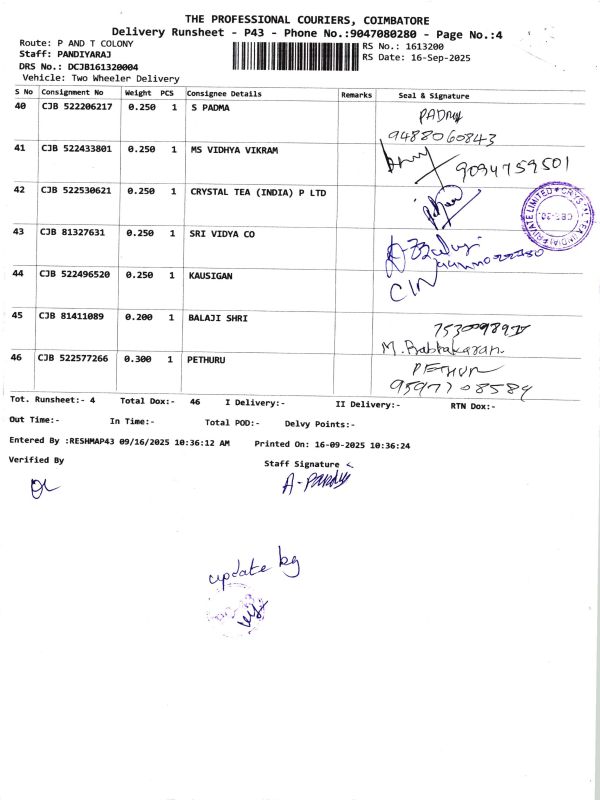 THE PROFESSIONAL COURIERS, COIMBATORE
Delivery Runsheet - P43 - Phone No.:9047080280 - Page No.:4
Route: P AND T COLONY
RS No.: 1613200
Staff: PANDIYARAJ
RS Date: 16-Sep-2025
DRS No.: DCJB161320004
Vehicle: Two Wheeler Delivery
S No Consignment No Weight PCS Consignee Details Remarks Seal & Signature
40 CJB 522206217 0.250 1 S PADMA PADMA
9488060843
41 CJB 522433801 0.250 1 MS VIDHYA VIKRAM 9094759501
42 CJB 522530621 0.250 1 CRYSTAL TEA (INDIA) P LTD
CRYSTAL TEA (INDIA) PRIVATE LIMITED
43 CJB 81327631 0.250 1 SRI VIDYA CO
44 CJB 522496520 0.250 1 KAUSIGAN
45 CJB 81411089 0.200 1 BALAJI SHRI
M. Prabhakaran.
46 CJB 522577266 0.300 1 PETHURU PETHUR
9597708584
Tot. Runsheet:- 4 Total Dox:- 46 I Delivery:- II Delivery:- RTN Dox:-
Out Time:- In Time:- Total POD:- Delvy Points:-
Entered By :RESHMAP43 09/16/2025 10:36:12 AM Printed On: 16-09-2025 10:36:24
Verified By
Staff Signature
A-Pandy
update kg